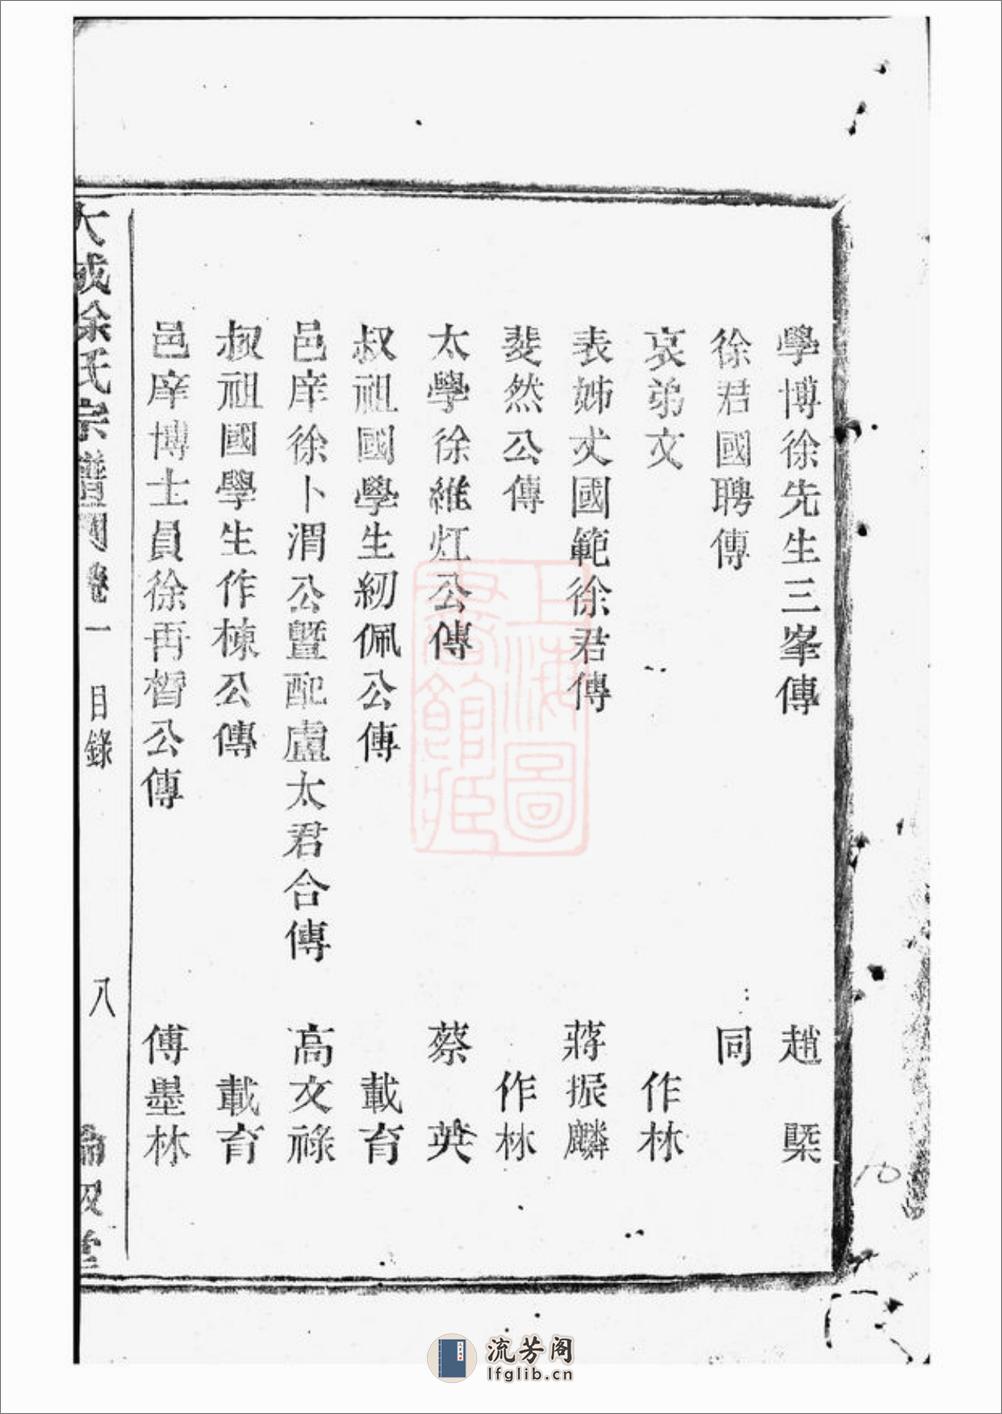 學博徐先生三峯傳 趙槩
徐君國聘傳 同
哀弟文 作林
表姊丈國範徐君傳 蔣振麟
斐然公傳 作林
太學徐維缸公傳 蔡英
叔祖國學生紉佩公傳 載育
邑庠徐卜渭公曁配盧太君合傳 高文祿
叔祖國學生作棟公傳 載育
邑庠博士員徐再哲公傳 傅墨林
大成徐氏宗譜 卷一 目錄 八 倫敘堂
上海圖書館藏
10
流芳阁
lfglib.cn